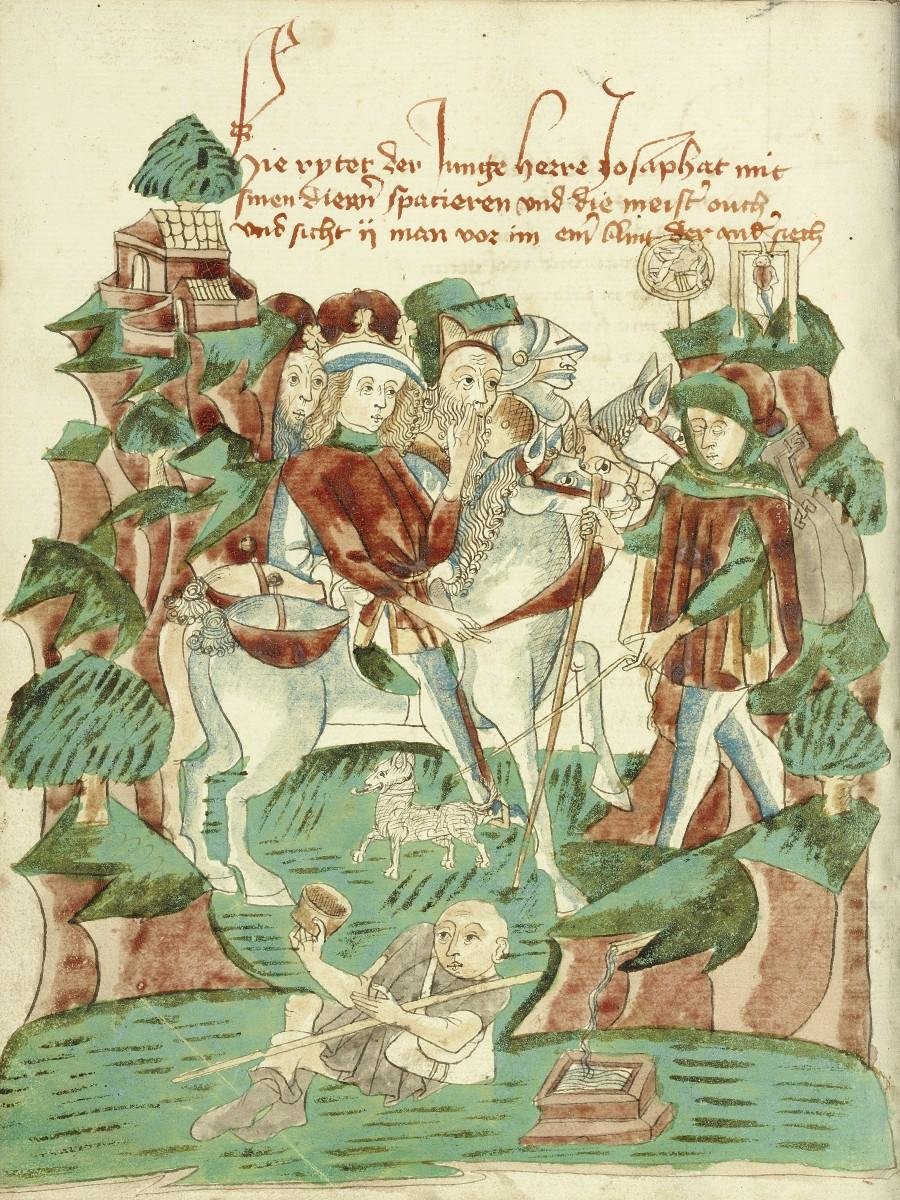 Hie rytet der Junge herre Josaphat mit
sinen dienern spacieren vnd die meister ouch
vnd sicht ij man vor im einer blint der ander siech